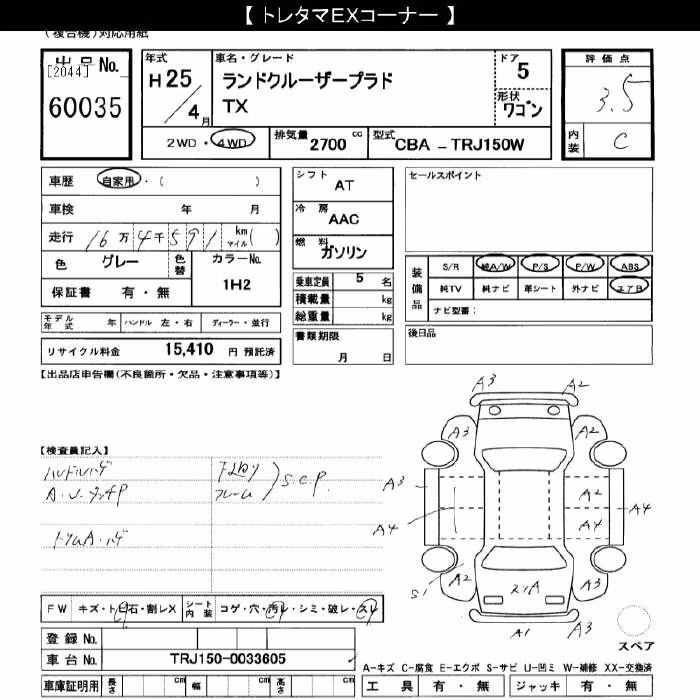 【 トレタマEXコーナー 】
(複合機)対応用紙
出品No.
[2044]
60035
年式
H25/4月
車名・グレード
ランドクルーザープラド
TX
ドア
5
形状
ワゴン
評価点
3.5
内装
C
2WD・4WD
排気量
2700 cc
型式
CBA - TRJ150W
車歴 自家用・( )
車検 年 月
走行 16万4千591 km マイル( )
色 グレー 色替 カラーNo. 1H2
保証書 有・無
シフト
AT
冷房
AAC
燃料
ガソリン
乗車定員 5 名
積載量 kg
総重量 kg
書類期限
月 日
セールスポイント
装備品
S/R 純A/W P/S P/W ABS
純TV 純ナビ 革シート 外ナビ エアB
ナビ型番:
後日品
モデル年式 年 ハンドル 左・右 ディーラー・並行
リサイクル料金 15,410 円 預託済
【出品店申告欄(不良箇所・欠品・注意事項等)】
【検査員記入】
ハンドルハゲ
フレーム
S.C.P.
FW キズ・ト石・割レX
シート内装 コゲ・穴・汚レ・シミ・破レ・スレ
登録No.
車台No. TRJ150-0033605
車庫証明用 長さ cm 幅 cm 高さ cm
A3 A2
A3 A2
A3
A2
A4 A4 A4
S1 A2 A3
A1 A3
スペア
A-キズ C-腐食 E-エクボ S-サビ U-凹ミ W-補修 XX-交換済
工具 有・無 ジャッキ 有・無